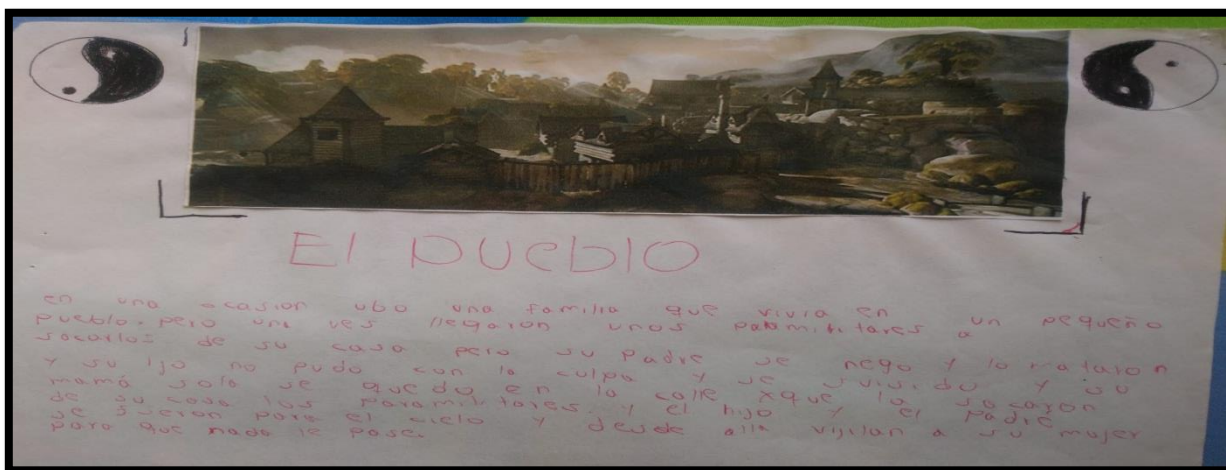 El pueblo
en una ocasion ubo una familia que vivia en un pequeño
pueblo. pero una ves llegaron unos paramilitares a
sacarlos de su casa pero su padre se nego y lo mataron
y su ijo no pudo con la culpa y se suisido y su
mamá sola se quedo en la calle xque la sacaron
de su casa los paramilitares. y el hijo y el padre
se fueron para el cielo y desde alla vijilan a su mujer
para que nada le pase.